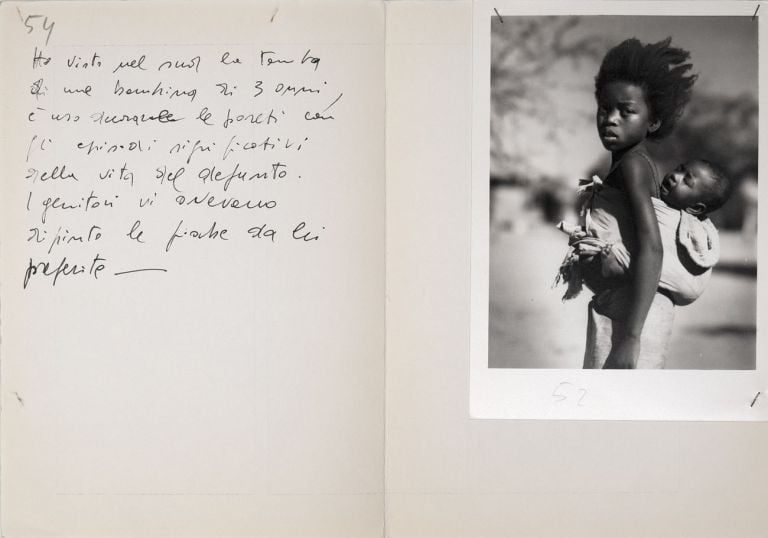 54
Ho visto nel sud la tomba
di una bambina di 3 anni,
è uso decorare le pareti con
gli episodi significativi
della vita del defunto.
I genitori vi avevano
dipinto le fiabe da lei
preferite —
52